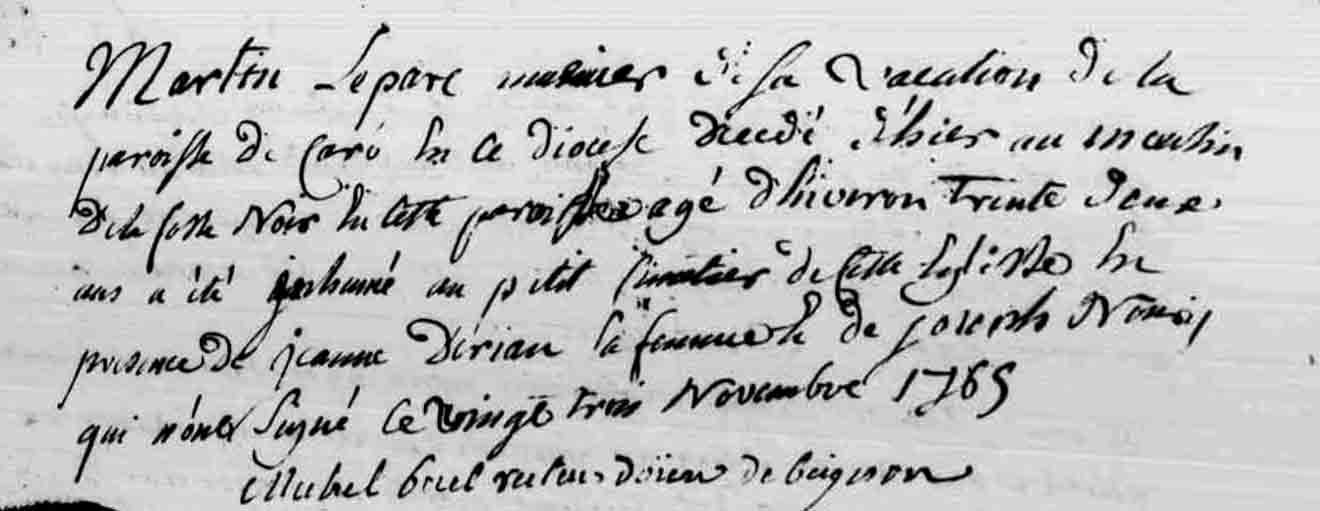 Martin Leparc meunier de sa vacation de la
paroisse de Caro En ce diocese decedé d'hier au moulin
De la fosse Noir En cette paroisse agé d'hiveron trente deux
ans a été inhumé au petit Cimetier de Cette Eglisse En
presence de jeanne Derian sa femme Et de joseph
qui n'ont Signé Ce vingt trois Novembre 1765
Michel recteur doïen de beignon